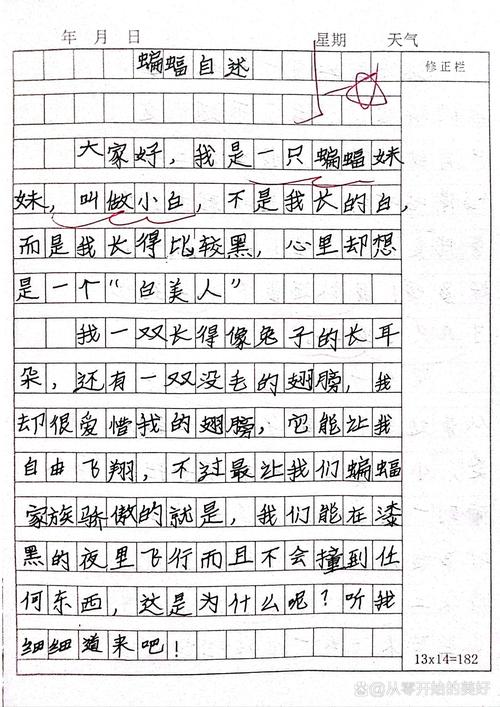 年 月 日 星期 天气
蝙蝠自述
修正栏
大家好，我是一只蝙蝠妹
妹，叫做小白，不是我长的白，
而是我长得比较黑，心里却想
是一个“白美人”
我一双长得像兔子的长耳
朵，还有一双没毛的翅膀，我
却很爱惜我的翅膀，它能让我
自由飞翔，不过最让我们蝙蝠
家族骄傲的就是，我们能在漆
黑的夜里飞行而且不会撞到任
何东西，这是为什么呢？听我
细细道来吧！
13x14=182
@从零开始的美好